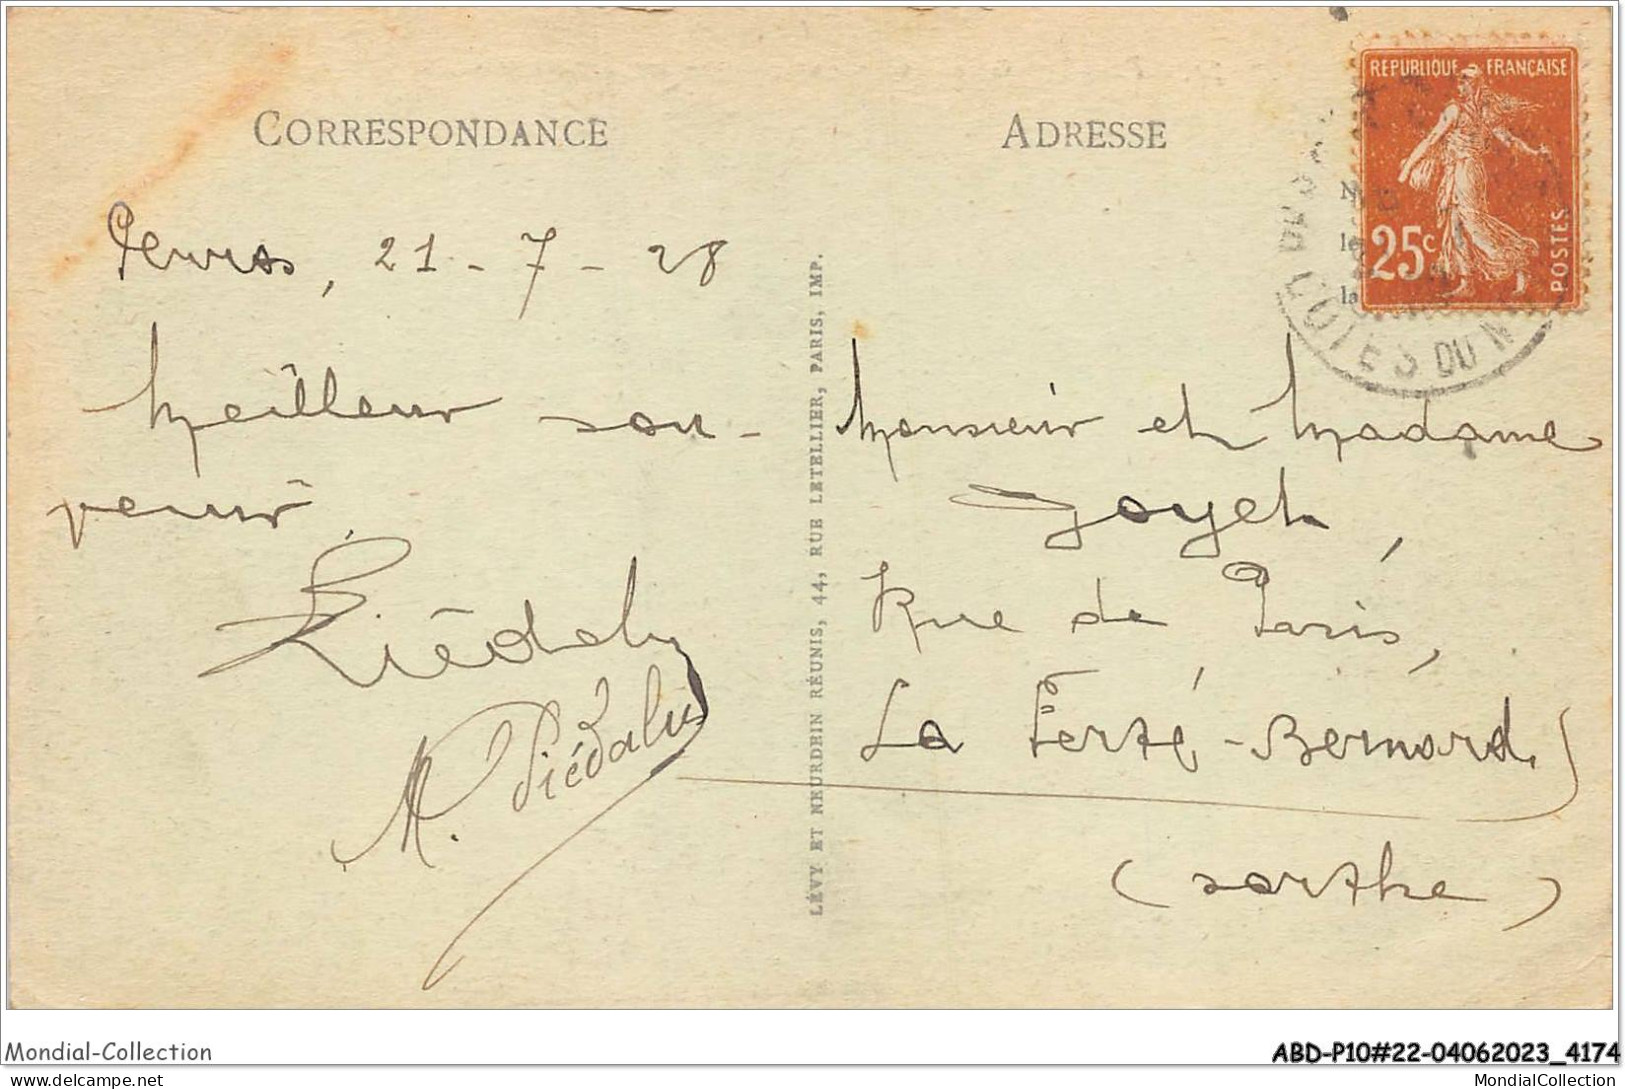 CORRESPONDANCE
Perros, 21-7-28
Meilleur sou-
venir.
Piédalu
M. Piédalu
LÉVY ET NEURDEIN RÉUNIS, 44, RUE LETELLIER, PARIS, IMP.
ADRESSE
REPUBLIQUE FRANÇAISE
25c
POSTES
COTES DU N
Monsieur et Madame
Goyet,
Rue de Paris,
La Ferté-Bernard
(Sarthe)
Mondial-Collection
ABD-P10#22-04062023_4174
delcampe.net
MondialCollection